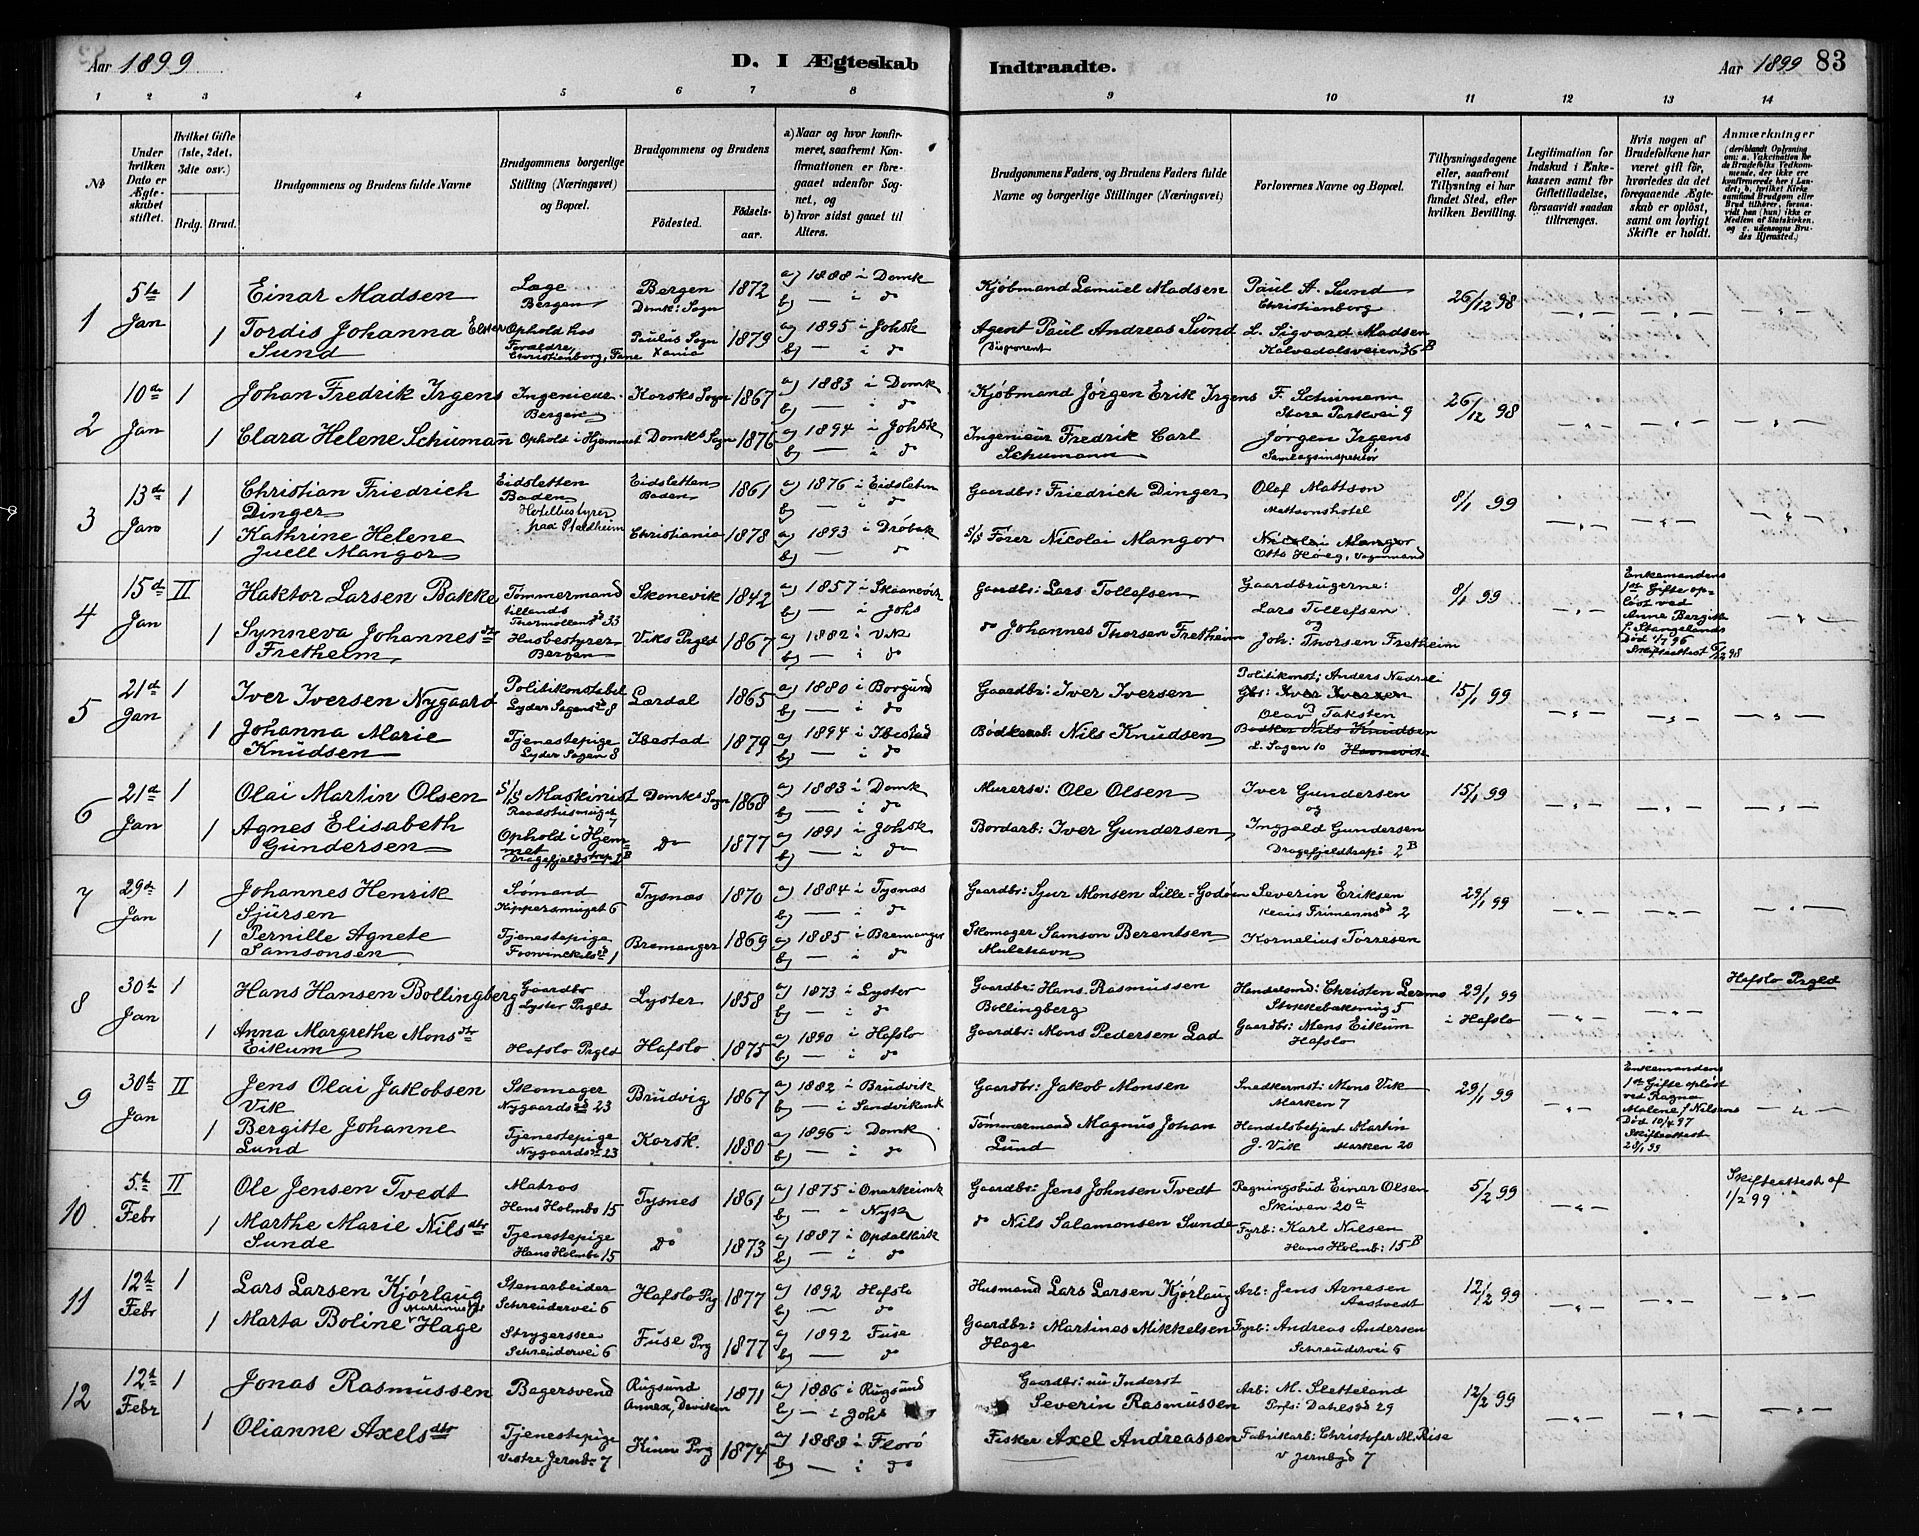 Aar 1899
D. I Ægteskab
Indtraadte.
Aar 1899 83
1 2 3 4 5 6 7 8 9 10 11 12 13 14
No
Under hvilken Dato er Ægteskabet stiftet.
Hvilket Gifte (1ste, 2det, 3die osv.)
Brdg. Brud.
Brudgommens og Brudens fulde Navne
Brudgommens borgerlige Stilling (Næringsvei) og Bopæl.
Brudgommens og Brudens
Fødested.
Fødselsaar.
a) Naar og hvor konfirmeret, saafremt Konfirmationen er foregaaet udenfor Sognet, og
b) hvor sidst gaaet til Alters.
Brudgommens Faders, og Brudens Faders fulde Navne og borgerlige Stillinger (Næringsvei)
Forlovernes Navne og Bopæl.
Tillysningsdagene eller, saafremt Tillysning ei har fundet Sted, efter hvilken Bevilling.
Legitimation for Indskud i Enkekassen samt for Giftetilladelse, forsaavidt saadan tiltrænges.
Hvis nogen af Brudefolkene har været gift før, hvorledes da det foregaaende Ægteskab er opløst, samt om lovligt Skifte er holdt.
Anmærkninger (deriblandt Oplysning om: a. Vakcination for de Brudefolks Vedkommende, der ikke ere konfirmerede her i Landet; b. hvilket Kirkesamfund Brudgom eller Brud tilhører, forsaavidt han (hun) ikke er Medlem af Statskirken, og c. udensogns Brudes Hjemsted.)
1 5te Jan 1 Einar Madsen Læge Bergen Bergen Domk: Sogn 1872 a) 1888 i Domk b) — i do Kjøbmand Samuel Madsen Paul A. Sund Christianborg 26/12 98
1 Tordis Johanna Elster Sund Ophold hos Forældre, Christianborg, Fane Paulus Sogn Xania 1879 a) 1895 i Johsk b) — i do Agent Paul Andreas Sund (Disponent L. Sigvard Madsen Kalvedalsveien 36 B
2 10de Jan 1 Johan Fredrik Irgens Ingeniør Bergen Korsk Sogn 1867 a) 1883 i Domk b) — i do Kjøbmand Jørgen Erik Irgens F. Schumann Store Parkvei 9 26/12 98
1 Clara Helene Schumann Ophold i Hjemmet Domks Sogn 1876 a) 1894 i Johsk b) — i do Ingeniør Fredrik Carl Schumann Jørgen Irgens Samlagsinspektør
3 13de Jan 1 Christian Friedrich Dinger Eidsletten Baden Hotelbestyrer paa Stalheim Eidsletten Baden 1861 a) 1876 i Eidsletten b) — i do Gaardbr: Friedrich Dinger Olaf Mattson Mattsonshotel 8/1 99
1 Kathrine Helene Juell Mangor Christiania 1878 a) 1893 i Drøbak b) — do S/S Fører Nicolai Mangor Nicolai Mangor Otto Høeg, Vognmand
4 15de Jan II Haktor Larsen Bakke Tømmermand Skonevik 1842 a) 1857 i Skaanevik b) — i Johs Gaardbr: Lars Tollefsen Gaardbrugerne: Lars Tollefsen og 8/1 99 Enkemandens 1ste Gifte opløst ved Anne Bergith f. Stangelands Død 1/7 96 Skifteattest 6/12 98
1 Synneva Johannesdtr Fretheim Husbestyrer Bergen Viks Prgld 1867 a) 1882 i Vik b) — i do do Johannes Thorsen Fretheim Joh: Thorsen Fretheim
5 21de Jan 1 Iver Iversen Nygaard Politikonstabel Lyder Sagensgd 8 Lærdal 1865 a) 1880 i Borgund b) — i do Gaardbr: Iver Iversen Politikonst; Anders Nedreli Gbr: Iver Iversen og Olav Taksten 15/1 99
1 Johanna Marie Knudsen Tjenestepige Lyder Sagen 8 Ibestad 1879 a) 1894 i Ibestad b) — i do Bødkerarb: Nils Knudsen Bødker Nils Knudsen L. Sagen 10 Havnevik
6 21de Jan 1 Olai Martin Olsen S/S Maskinist Raadstusmuget 7 Domks Sogn 1868 a) 1883 i Domk b) — i do Murersv: Ole Olsen Iver Gundersen og 15/1 99
1 Agnes Elisabeth Gundersen Ophold i Hjemmet Dragefjeldstrap 2 B do 1877 a) 1891 i Johsk b) — i do Bordarb: Iver Gundersen Ingvald Gundersen Dragefjeldtrap: 2 B
7 29de Jan 1 Johannes Henrik Sjursen Sømand Kippersmuget 6 Tysnæs 1870 a) 1884 i Tysnæs b) — i do Gaardbr: Sjur Monsen Lille-Godøen Severin Eriksen Klaus Frimannsgd 2 29/1 99
1 Pernille Agnete Samsonsen Tjenestepige Foswinckelsgd 1 Bremanger 1869 a) 1885 i Bremanger b) — i do Skomager Samson Berentsen Mulehavn Kornelius Torresen
8 30te Jan 1 Hans Hansen Bollingberg Gaardbr Lyster Prgld Lyster 1858 a) 1873 i Lyster b) — i do Gaardbr: Hans Rasmussen Bollingberg Handelsmd: Christen Lerum Strekkebæksmug 5 29/1 99 i Hafslo Hafslo Prgld
1 Anna Margrethe Monsdtr Eikum Hafslo Prgld Hafslo 1875 a) 1890 i Hafslo b) — i do Gaardbr: Mons Pedersen Lad Gaardbr: Mons Eikum Hafslo
9 30te Jan II Jens Olai Jakobsen Vik Skomager Nygaardsgd 23 Brudvig 1867 a) 1882 i Brudvik b) — i Sandvikenk Gaardbr: Jakob Monsen Snedkermst: Mons Vik Marken 7 29/1 99 Enkemandens 1ste Gifte opløst ved Ragna Malene f Nilsens Død 10/4 97 Skifteattest 28/1 99
1 Bergitte Johanne Lund Tjenestepige Nygaardsgd 23 Korsk. 1880 a) 1896 i Domk b) — i do Tømmermand Magnus Johan Lund Handelsbetjent Martin J. Vik Marken 20
10 5te Febr II Ole Jensen Tvedt Matros Hans Holmbo 15 Tysnes 1861 a) 1875 i Onarheimk b) — " Nyk Gaardbr: Jens Johnsen Tvedt Regningsbud Einar Olsen Skiven 20a 5/2 99 Skifteattest af 1/2 99
1 Marthe Marie Nilsdtr Sunde Tjenestepige Hans Holmbo 15 do 1873 a) 1887 i Opdalkirk b) — i do do Nils Salamonsen Sunde Fyrb: Karl Nilsen Hans Holmb: 15 B
11 12te Febr 1 Lars Larsen Kjørlaug Stenarbeider Schreudervei 6 Hafslo Prg 1877 a) 1892 Hafslo b) — do Husmand Lars Larsen Kjørlaug Arb: Jens Arnesen Aastvedt 12/2 99
1 Marta Boline Martinusdtr Hage Strygerske Schreudervei 6 Fuse Prg 1877 a) 1892 Fuse b) — do Gaardbr: Martines Mikkelsen Hage Fyrb: Andreas Andersen Schreudervei 6
12 12te Febr 1 Jonas Rasmussen Bagersvend Rugsund Annex, Daviken 1871 a) 1886 i Rugsund b) — i Johs Gaardbr: nu Inderst Severin Rasmussen Arb: M. Sletteland Prfs: Dahlsgd 29 12/2 99
1 Olianne Axelsdtr Tjenestepige Vestre Jernbd 7 Kinn Prg 1874 a) 1888 i Florø b) — i do Fisker Axel Andreassen Fabrikarb: Christofer M. Rise V Jernbgd 7